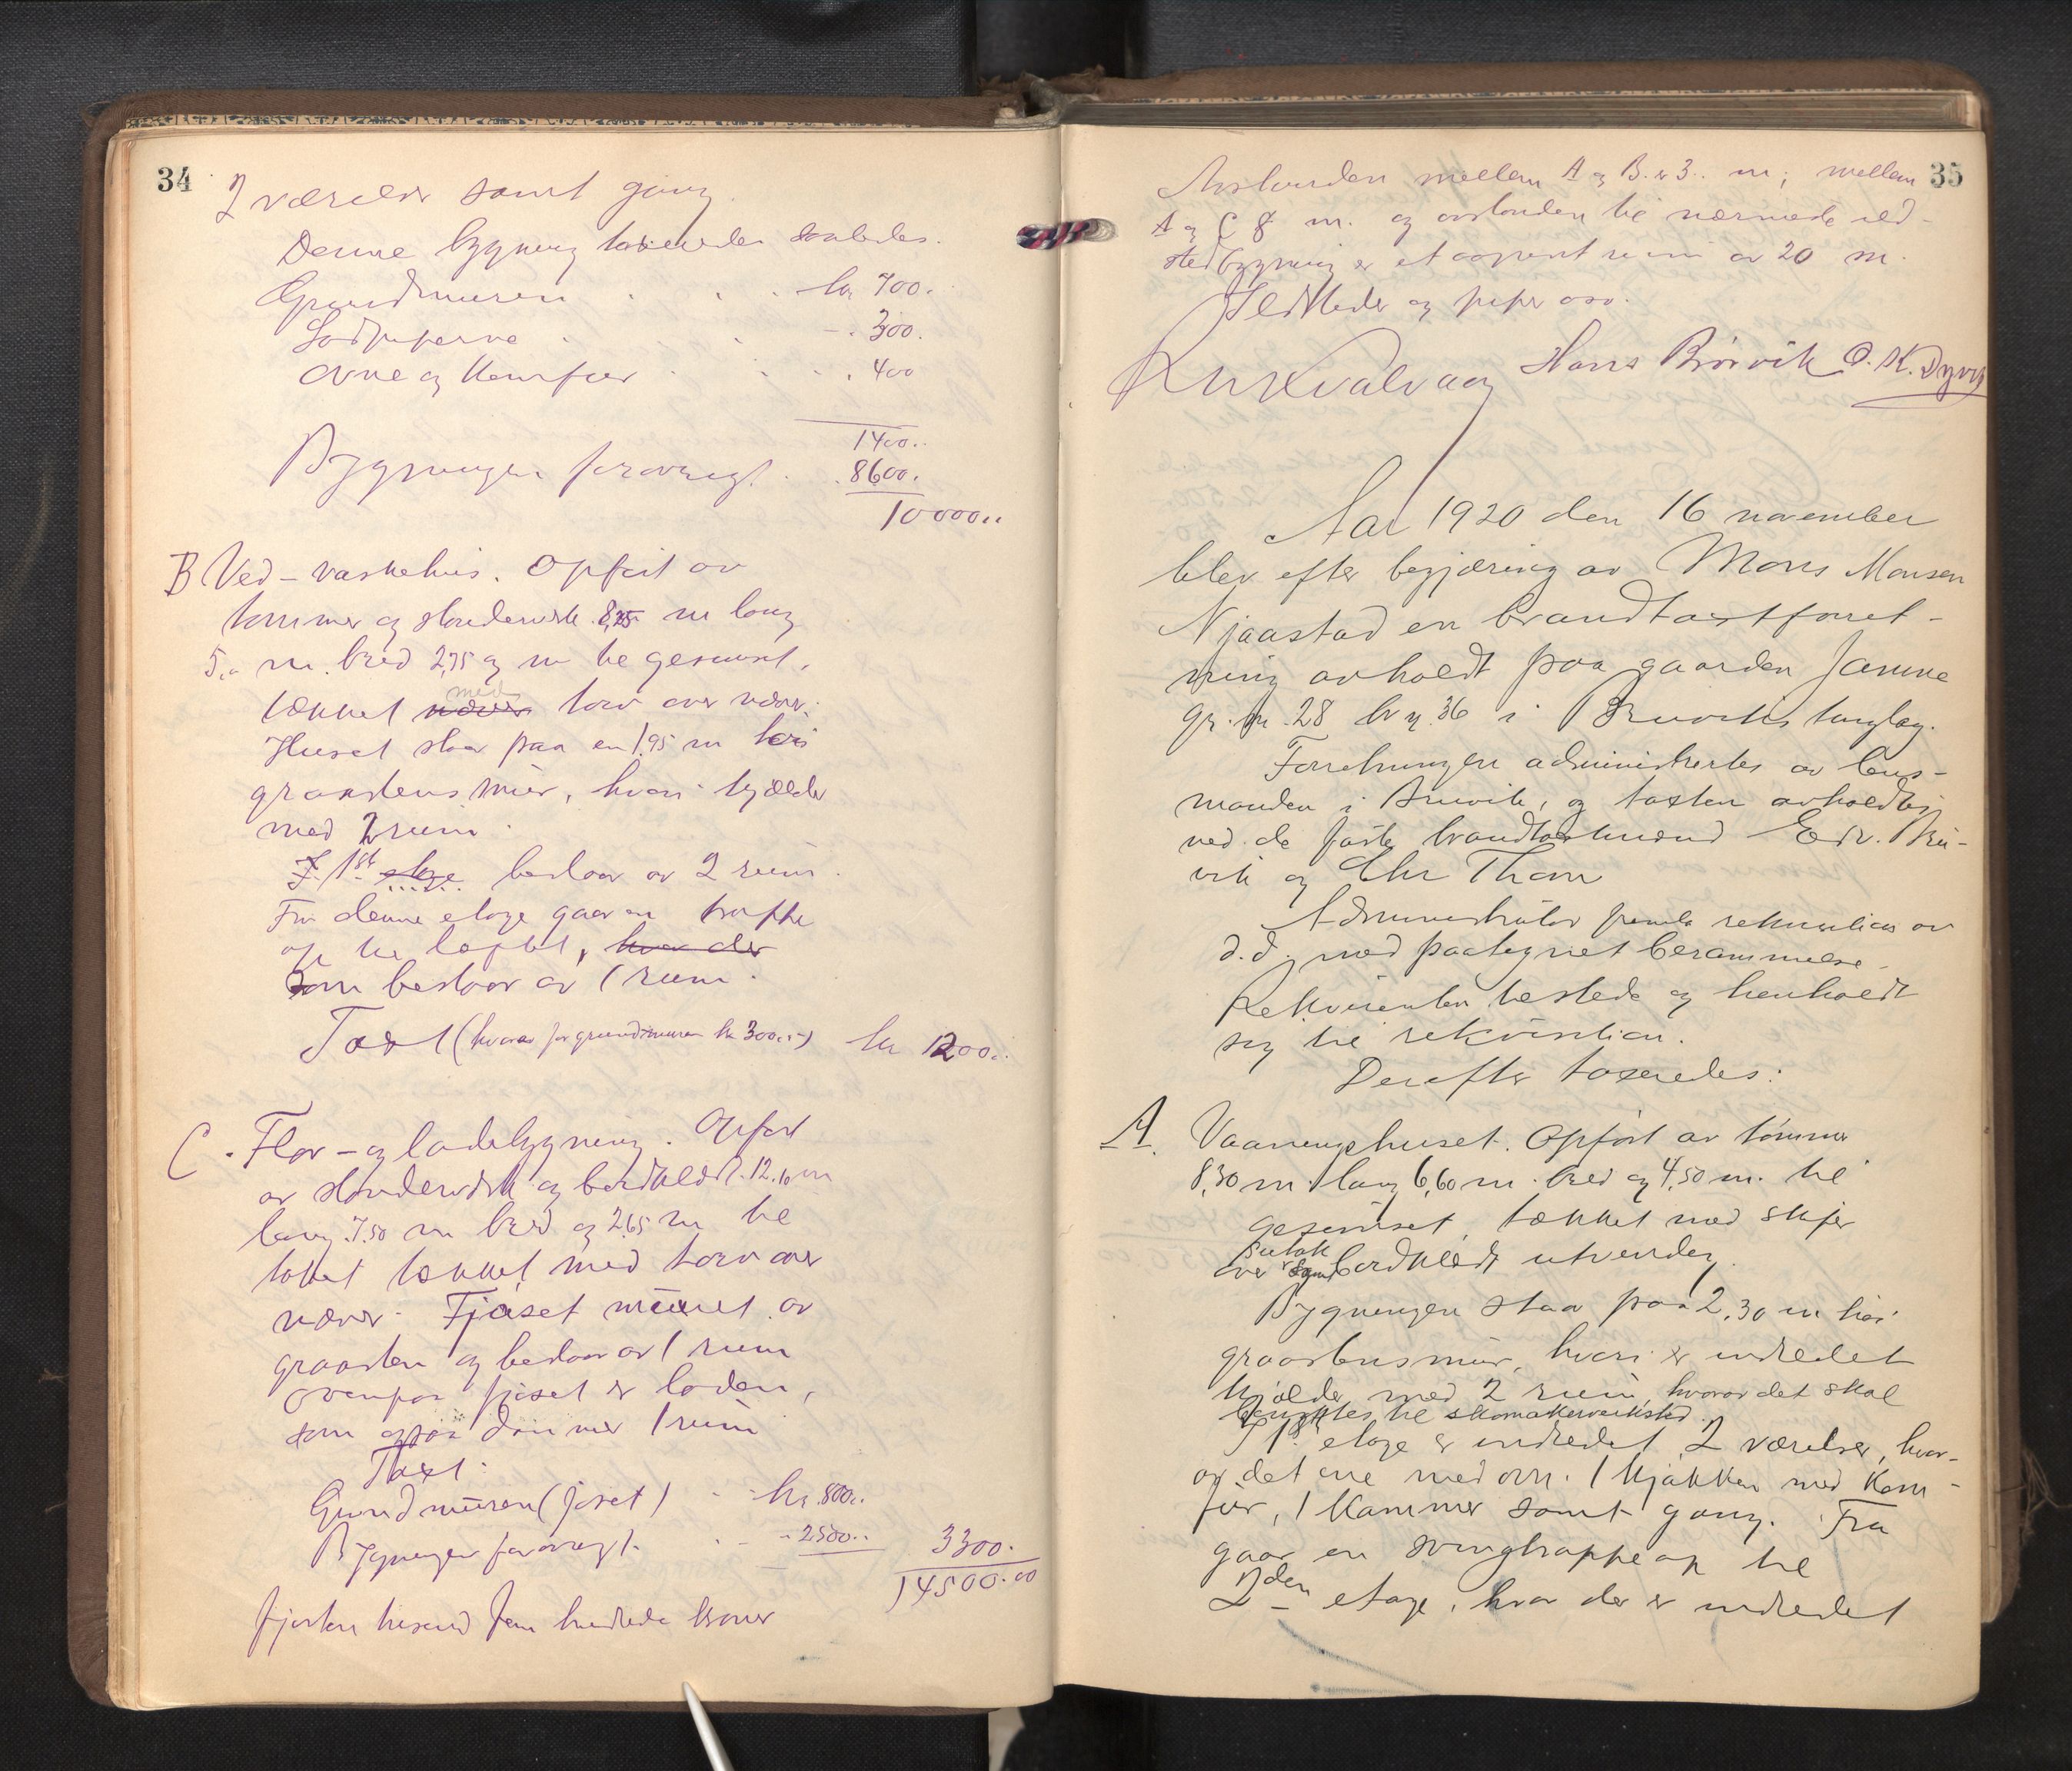 34
2 værelser samt gang
Denne bygning taxeredes saaledes.
Grundmuren . . . kr 700.
Lodpiperne . . - . 300.
Ovne og Komfur . . . . 400
1400..
Bygningen forøvrigt . . 8600.
10000..
B Ved - vaskehus. Opført av
tømmer og stenderverk 8,25 m lang
5,0 m. bred 2,75 og m til gesimst,
tækket med torv over næver.
Huset staar paa en 1,95 m høi
graastens mur, hvori kjælder
med 2 rum.
I. 1ste etage bestaar av 2 rum.
Fra denne etage gaar en trappe
op til loftet, hvor der
som bestaar av 1 rum.
Taxt (hvorav for grundmuren kr 300..-) kr 1200..
C. Flor - og ladebygning. Opført
av stenderverk og bordklædt. 12,10 m
lang 7.50 m bred og 2,65 m til
taket tækket med torv over
næver. Fjøset muret av
graasten og bestaar av 1 rum
ovenpaa fjøset er laden,
som ogsaa danner 1 rum
Taxt:
Grundmuren (fjøset) . - kr. 800..
Bygningen forøvrigt. . - - 2500.. 3300.
14500.00
fjorten tusend fem hundrede kroner
35
Avstanden mellem A og B. er 3.. m; mellem
A og C 8 m. og avstanden til nærmeste ild-
stedbygning er et aapent rum av 20 m.
Ildsteder og piper osv.
Kn Kvalvaag Hans Brørvik O. K. Dyvik
Aar 1920 den 16 november
blev efter begjæring av Mons Monsen
Njaastad en brandtaxtforret-
ning avholdt paa gaarden Jamne
gr. nr. 28 br n. 36 i Bruviks tinglag.
Forretningen administrertes av lens-
manden i Bruvik, og taxten avholdtes
ved de faste brandtakstmænd Edv. Bru-
vik og Chr Thom
Administrator fremla rekvisition av
d.d. med paategnet berammelse.
Rekvirenten tilstede og henholdt
sig til rekvisition.
Derefter taxeredes:
A. Vaaningshuset. Opført av tømmer
8,30 m. lang 6,60 m. bred og 4,50 m. til
gesimset, tækket med skifer
over sutak bordklædt utvendig.
Bygningen staar paa 2,30 m høi
graastensmur, hvori er indredet
kjælder med 2 rum, hvorav det skal
benyttes til skomakerverksted.
I 1ste etage er indredet 2 værelser, hvor-
av det ene med ovn. 1 kjøkken med Kom-
fur, 1 kammer samt gang. Fra
gaar en svingtrappe op til
2den etage, hvor der er indredet